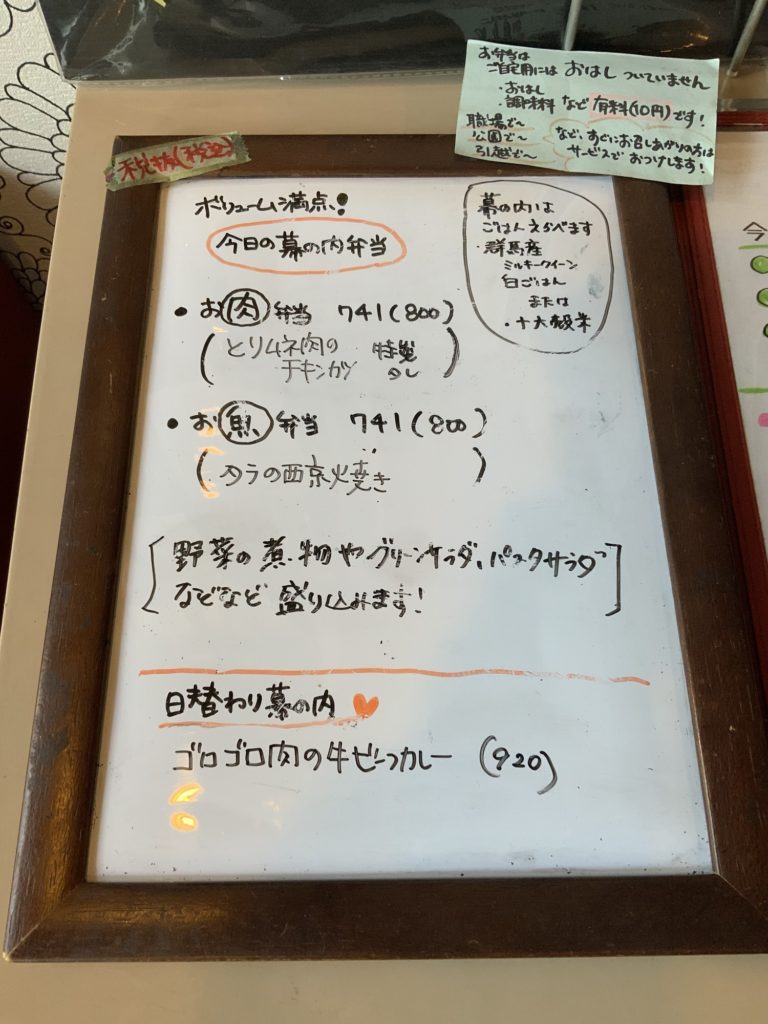 お弁当は
ご自宅用には おはし ついていません
・おはし
・調味料 など 有料(10円)です!
職場で〜
公園で〜
引越で〜
など、すぐにお召しあがりの方は
サービスで おつけします!
税抜(税込)
ボリューム満点!
今日の幕の内弁当
幕の内は
ごはんえらべます
・群馬産
ミルキークイーン
白ごはん
または
・十六穀米
• お肉弁当 741(800)
(とりムネ肉の
チキンカツ
• お魚弁当 741(800)
(タラの西京火焼き)
[野菜の煮物やグリーンサラダ、パスタサラダ
などなど 盛り込みます!]
日替わり幕の内
ゴロゴロ肉の牛ビーフカレー (920)
今